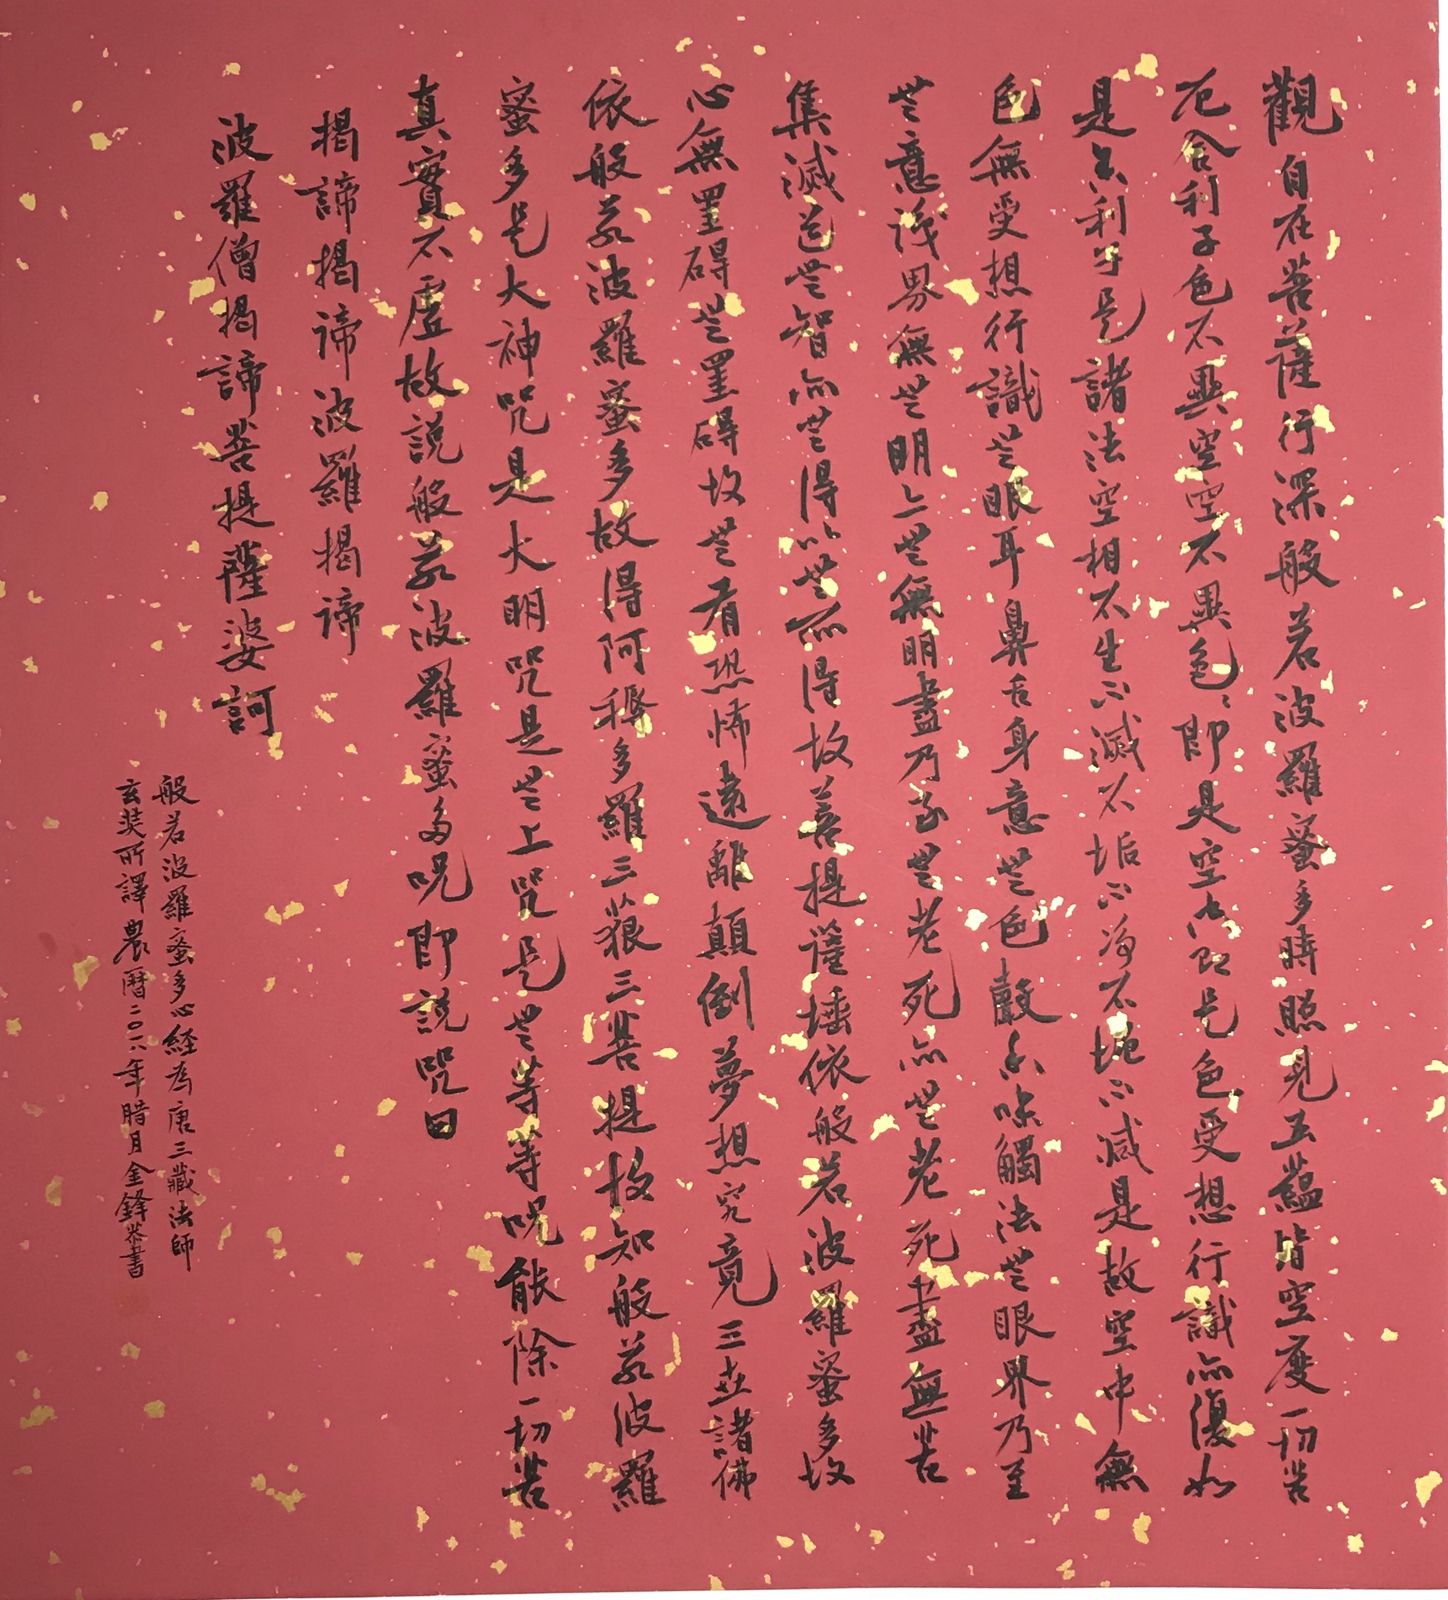 觀自在菩薩行深般若波羅蜜多時照見五蘊皆空度一切苦
厄舍利子色不異空空不異色色即是空空即是色受想行識亦復如
是舍利子是諸法空相不生不滅不垢不淨不增不減是故空中無
色無受想行識無眼耳鼻舌身意無色聲香味觸法無眼界乃至
無意識界無無明亦無無明盡乃至無老死亦無老死盡無苦
集滅道無智亦無得以無所得故菩提薩埵依般若波羅蜜多故
心無罣碍無罣碍故無有恐怖遠離顛倒夢想究竟三世諸佛
依般若波羅蜜多故得阿耨多羅三藐三菩提故知般若波羅
蜜多是大神咒是大明咒是無上咒是無等等呪能除一切苦
真實不虛故說般若波羅蜜多呪即說咒曰
揭諦揭諦波羅揭諦
波羅僧揭諦菩提薩婆訶
般若波羅蜜多心經為唐三藏法師
玄奘所譯農曆二〇一八年腊月金鋒恭書